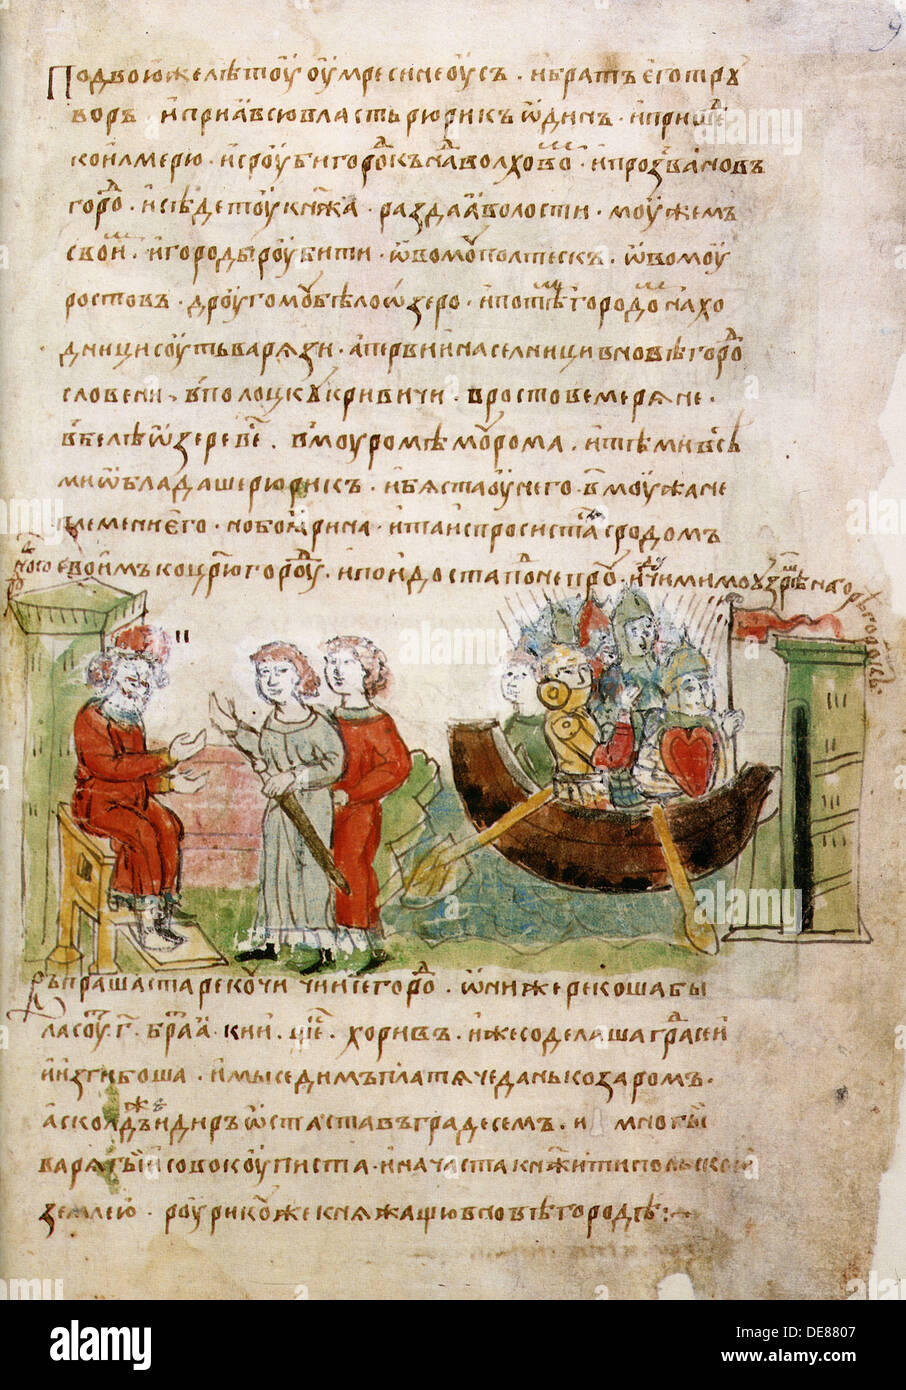 9
По двою же лѣтоу оумре синеоусъ · и братъ его трꙋ
воръ · и приꙗ всю власть рюрикъ ѡдинъ · и прише
к оилмерю · и сроуби городокъ над волховом · и прозва и новъ
городъ · и сѣде тоу кнѧжа · раздаꙗ волости · моужемъ
своим · и городы роубити · ѡвомꙋ полтескъ · ѡвомоу
ростовъ · дроугомꙋ бѣлоѡзеро · и по тѣм городом нахо
дници соуть варѧзи · а первии населници в новѣгородѣ
словени · в полоцкꙋ кривичи · в ростове мерѧне ·
в бѣлѣѡзере весь · в моуромѣ моурома · и тѣми всѣ
ми ѡбладаше рюрикъ · и бѧста оу него · в҃ моужа не
племени его · но боꙗрина · и та испросистасѧ с родомъ
своимъ ко црюгородꙋ · и поидоста по непрꙋ · идꙋчи мимо оузрѣста на горѣ городокъ
Въпрашаста рекоꙋчи чии се город · ѡни же рекоша бы
ла соуть г҃ · братьꙗ · кии · щекъ · хоривъ · иже сделаша градок сии
и изгибоша · и мы седимъ платѧче дань козаромъ ·
асколдъ же и диръ ѡстаста въ граде семъ · и многы
варѧгы совокоуписта · и начаста кнѧжити польскою
землею · роурикꙋ же кнѧжащю в новѣгородѣ :~
alamy
Image ID: DE8807
www.alamy.com